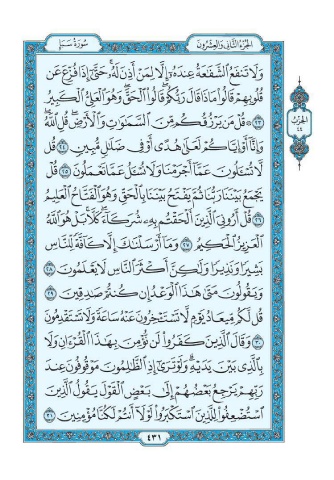 الجزء الثاني والعشرون
سورة سبإ
وَلَا تَنفَعُ ٱلشَّفَٰعَةُ عِندَهُۥٓ إِلَّا لِمَنْ أَذِنَ لَهُۥ حَتَّىٰٓ إِذَا فُزِّعَ عَن
قُلُوبِهِمْ قَالُوا۟ مَاذَا قَالَ رَبُّكُمْ قَالُوا۟ ٱلْحَقَّ وَهُوَ ٱلْعَلِىُّ ٱلْكَبِيرُ
٢٣ ۞ قُلْ مَن يَرْزُقُكُم مِّنَ ٱلسَّمَٰوَٰتِ وَٱلْأَرْضِ قُلِ ٱللَّهُ
وَإِنَّآ أَوْ إِيَّاكُمْ لَعَلَىٰ هُدًى أَوْ فِى ضَلَٰلٍ مُّبِينٍ ٢٤ قُل
لَّا تُسْـَٔلُونَ عَمَّآ أَجْرَمْنَا وَلَا نُسْـَٔلُ عَمَّا تَعْمَلُونَ ٢٥ قُلْ
يَجْمَعُ بَيْنَنَا رَبُّنَا ثُمَّ يَفْتَحُ بَيْنَنَا بِٱلْحَقِّ وَهُوَ ٱلْفَتَّاحُ ٱلْعَلِيمُ
٢٦ قُلْ أَرُونِىَ ٱلَّذِينَ أَلْحَقْتُم بِهِۦ شُرَكَآءَ كَلَّا بَلْ هُوَ ٱللَّهُ
ٱلْعَزِيزُ ٱلْحَكِيمُ ٢٧ وَمَآ أَرْسَلْنَٰكَ إِلَّا كَآفَّةً لِّلنَّاسِ
بَشِيرًا وَنَذِيرًا وَلَٰكِنَّ أَكْثَرَ ٱلنَّاسِ لَا يَعْلَمُونَ ٢٨
وَيَقُولُونَ مَتَىٰ هَٰذَا ٱلْوَعْدُ إِن كُنتُمْ صَٰدِقِينَ ٢٩
قُل لَّكُم مِّيعَادُ يَوْمٍ لَّا تَسْتَـْٔخِرُونَ عَنْهُ سَاعَةً وَلَا تَسْتَقْدِمُونَ
٣٠ وَقَالَ ٱلَّذِينَ كَفَرُوا۟ لَن نُّؤْمِنَ بِهَٰذَا ٱلْقُرْءَانِ وَلَا
بِٱلَّذِى بَيْنَ يَدَيْهِ وَلَوْ تَرَىٰٓ إِذِ ٱلظَّٰلِمُونَ مَوْقُوفُونَ عِندَ
رَبِّهِمْ يَرْجِعُ بَعْضُهُمْ إِلَىٰ بَعْضٍ ٱلْقَوْلَ يَقُولُ ٱلَّذِينَ
ٱسْتُضْعِفُوا۟ لِلَّذِينَ ٱسْتَكْبَرُوا۟ لَوْلَآ أَنتُمْ لَكُنَّا مُؤْمِنِينَ ٣١
الحزب
٤٤
٤٣١